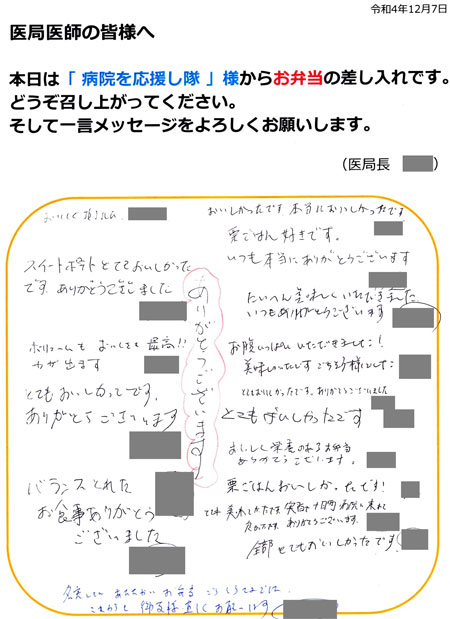 令和4年12月7日
医局医師の皆様へ
本日は「 病院を応援し隊 」様からお弁当の差し入れです。
どうぞ召し上がってください。
そして一言メッセージをよろしくお願いします。
（医局長　　　）
おいしく頂きました。
スイートポテトとてもおいしかった
です ありがとうございました
ボリュームも おいしさも 最高!!
力が出ます
とてもおいしかったです。
ありがとうございます
バランスとれた
お食事ありがとう
ございました
ありがとうございます
おいしかったです 本当においしかったです
栗ごはん好きです。
いつも本当にありがとうございます
たいへん美味しくいただきました
いつもありがとうございます
お腹いっぱいいただきました!
美味しかったです ごちそう様でした
とてもおいしかったです。ありがとうございました
とてもおいしかったです
おいしく栄養のある お弁当
ありがとうございます。
栗ごはんおいしかったです!
とても 美味しかったです
ありがとうございます。
全部とてもおいしかったです!